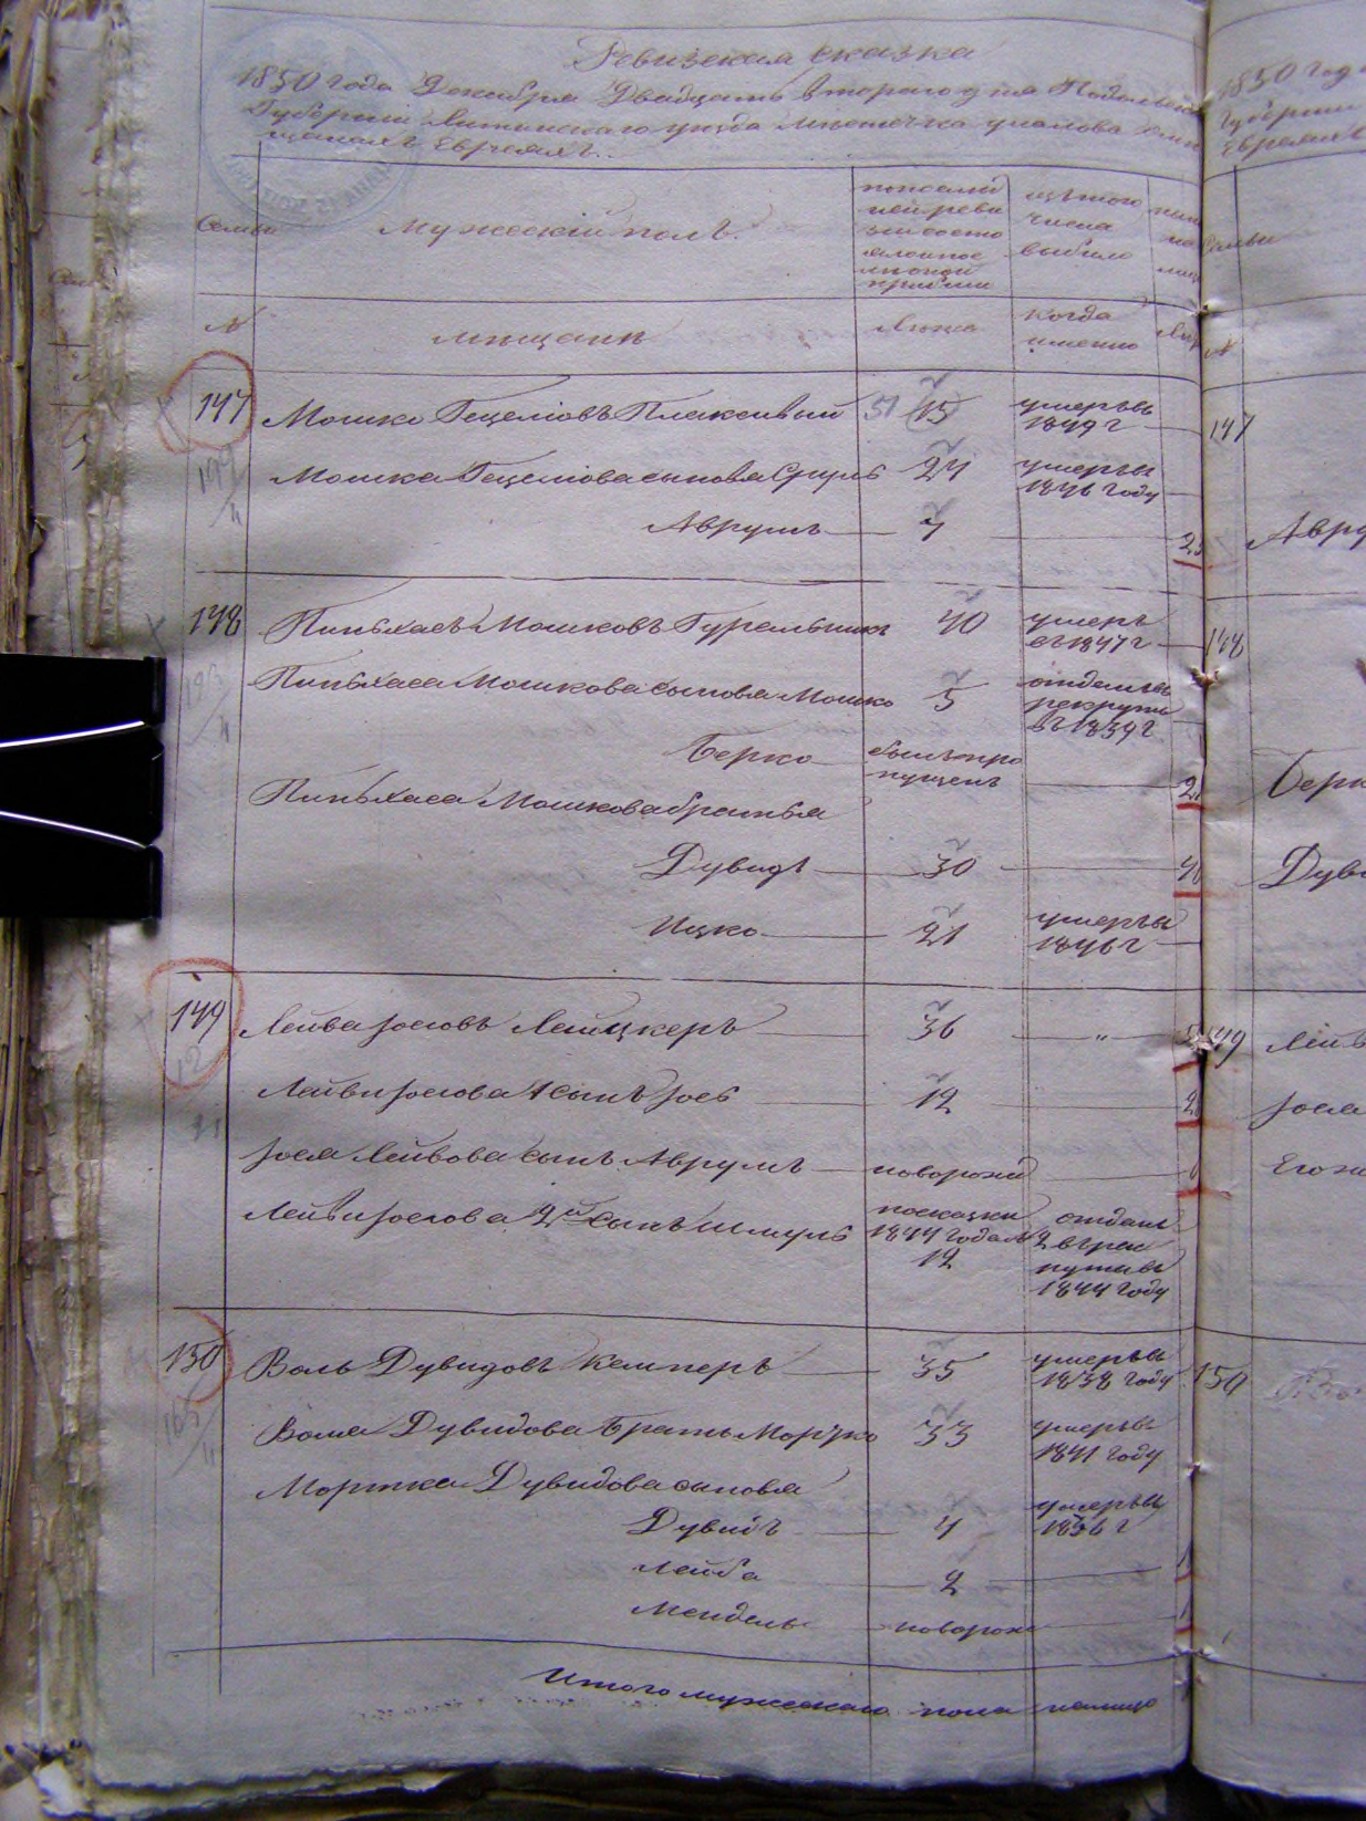 Ревизская сказка
1850 года Декабря Двадцать второго дня Подольской
Губернии Литинского уезда местечка Уланова
щанахъ Евреяхъ.
Семьи
Мужеский полъ.
По последней ревизии состояло и после оной прибыло
Изъ того числа выбыло
№
мещане
Лета
когда именно
147 Мошко Гецелiовъ Плаксивый 51 15 умеръ въ 1849 г
Мошка Гецелiова сыновя Сруль 24 умеръ въ 1846 году
Аврумъ 7
148 Пиньхасъ Мошковъ Гуральникъ 40 умеръ въ 1847 г
Пиньхаса Мошкова сыновя Мошко 5 отданъ въ рекруты въ 1839 г
Берко былъ пропущенъ
Пиньхаса Мошкова братья
Дувидъ 30 40
Ицко 21 умеръ въ 1846 г
149 Лейба Iосiовъ Лейцкеръ 36 "
Лейби Iосiова 1 сынъ Iось 12
Iося Лейбова сынъ Аврумъ новорожд
Лейби Iосiова 2й сынъ Шмуль по сказки 1844 года 12 отданъ въ рекруты въ 1844 году
150 Воль Дувидовъ Кемперъ 35 умеръ въ 1838 году
Воля Дувидова братъ Мортко 33 умеръ въ 1841 году
Мортка Дувидова сыновя
Дувидъ 4 умеръ въ 1836 г
Лейба 2
Мендель новорож
Итого мужескаго пола налицо
1850 год
Губернии
Евреяхъ
Семьи
№
147
Авру
148
Берк
Дуви
149 Лейб
Iося
Его ж
150